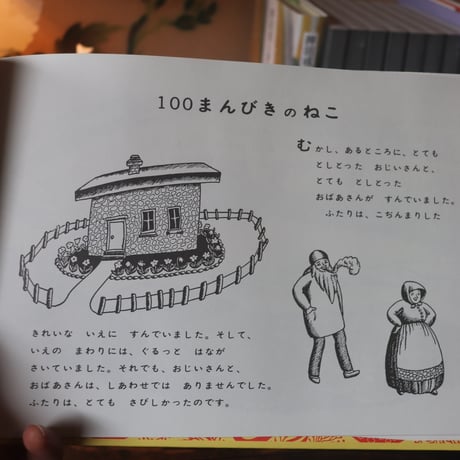 100まんびきのねこ
むかし、あるところに、とても
としとった おじいさんと、
とても としとった
おばあさんが すんでいました。
ふたりは、こぢんまりした
きれいな いえに すんでいました。そして、
いえの まわりには、ぐるっと はなが
さいていました。それでも、おじいさんと、
おばあさんは、しあわせでは ありませんでした。
ふたりは、とても さびしかったのです。